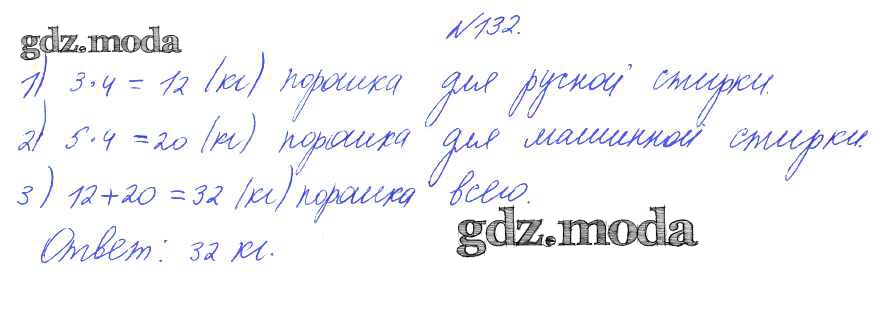 №132.
gdz.moda
1) 3·4 = 12 (кг) порошка для ручной стирки.
2) 5·4 = 20 (кг) порошка для машинной стирки.
3) 12+20 = 32 (кг) порошка всего.
gdz.moda
Ответ: 32 кг.